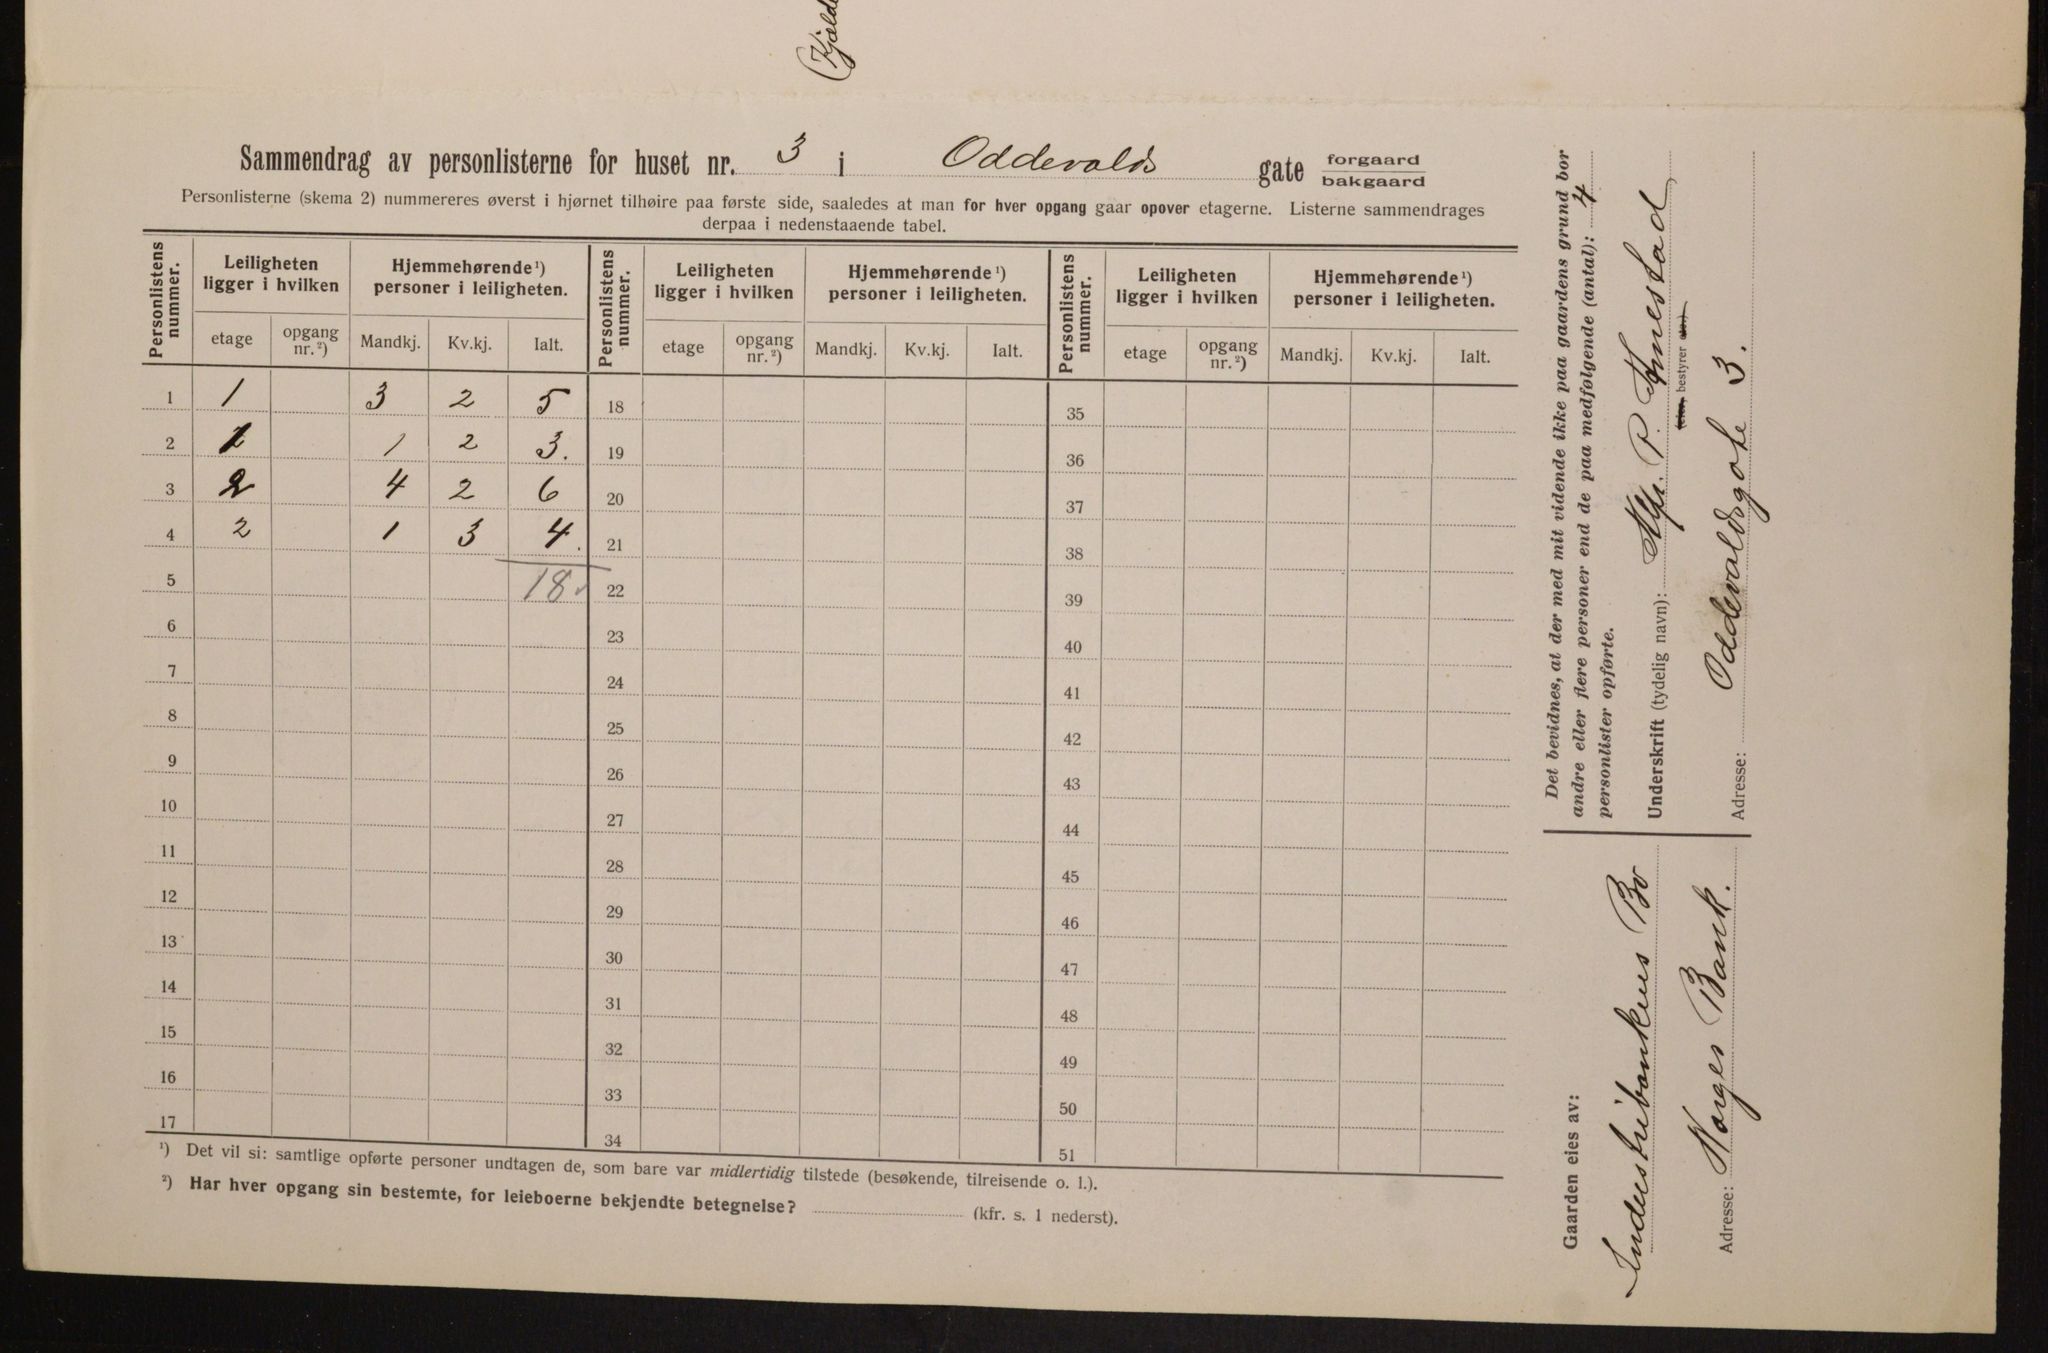 (Kjæld
Sammendrag av personlisterne for huset nr. 3 i Oddevalds gate forgaard
bakgaard
Personlisterne (skema 2) nummereres øverst i hjørnet tilhøire paa første side, saaledes at man for hver opgang gaar opover etagerne. Listerne sammendrages
derpaa i nedenstaaende tabel.
Personlistens nummer. Leiligheten ligger i hvilken Hjemmehørende ¹) personer i leiligheten. Personlistens nummer. Leiligheten ligger i hvilken Hjemmehørende ¹) personer i leiligheten. Personlistens nummer. Leiligheten ligger i hvilken Hjemmehørende ¹) personer i leiligheten.
etage opgang nr. ²) Mandkj. Kv.kj. Ialt. etage opgang nr. ²) Mandkj. Kv.kj. Ialt. etage opgang nr. ²) Mandkj. Kv.kj. Ialt.
1 1 3 2 5 18 35
2 1 1 2 3. 19 36
3 2 4 2 6 20 37
4 2 1 3 4. 21 38
5 18 22 39
6 23 40
7 24 41
8 25 42
9 26 43
10 27 44
11 28 45
12 29 46
13 30 47
14 31 48
15 32 49
16 33 50
17 34 51
¹) Det vil si: samtlige opførte personer undtagen de, som bare var midlertidig tilstede (besøkende, tilreisende o. l.).
²) Har hver opgang sin bestemte, for leieboerne bekjendte betegnelse? (kfr. s. 1 nederst).
Det bevidnes, at der med mit vidende ikke paa gaardens grund bor
andre eller flere personer end de paa medfølgende (antal): 4
personlister opførte.
Underskrift (tydelig navn): P.
bestyrer
Adresse: Oddevaldsgate 3.
Gaarden eies av:
Industribankens Bo
Adresse: Norges Bank.